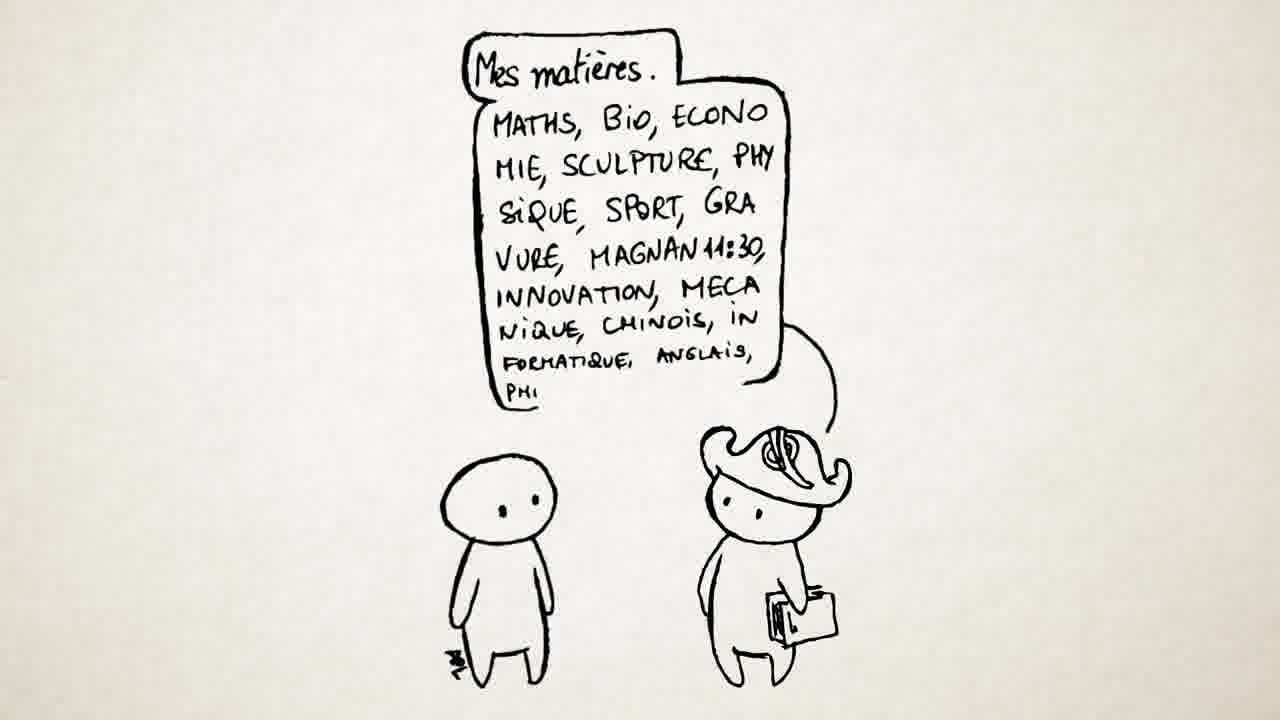 Mes matières.
MATHS, BiO, ECONO
MIE, SCULPTURE, PHY
SiQUE, SPORT, GRA
VURE, MAGNAN 11:30,
INNOVATION, MECA
NiQUE, CHINOiS, iN
FORMATIQUE, ANGLAiS,
PHi